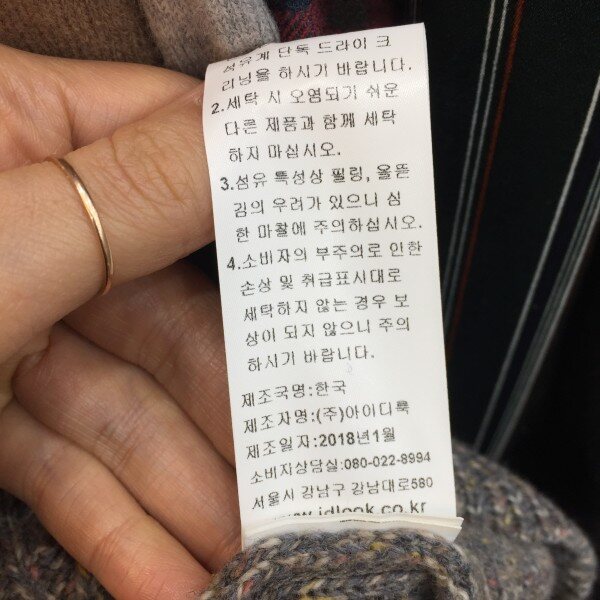 섬유계 단독 드라이 크
리닝을 하시기 바랍니다.
2.세탁 시 오염되기 쉬운
다른 제품과 함께 세탁
하지 마십시오.
3.섬유 특성상 필링, 올뜯
김의 우려가 있으니 심
한 마찰에 주의하십시오.
4.소비자의 부주의로 인한
손상 및 취급표시대로
세탁하지 않는 경우 보
상이 되지 않으니 주의
하시기 바랍니다.
제조국명:한국
제조자명:(주)아이디룩
제조일자:2018년1월
소비자상담실:080-022-8994
서울시 강남구 강남대로580
www.idlook.co.kr